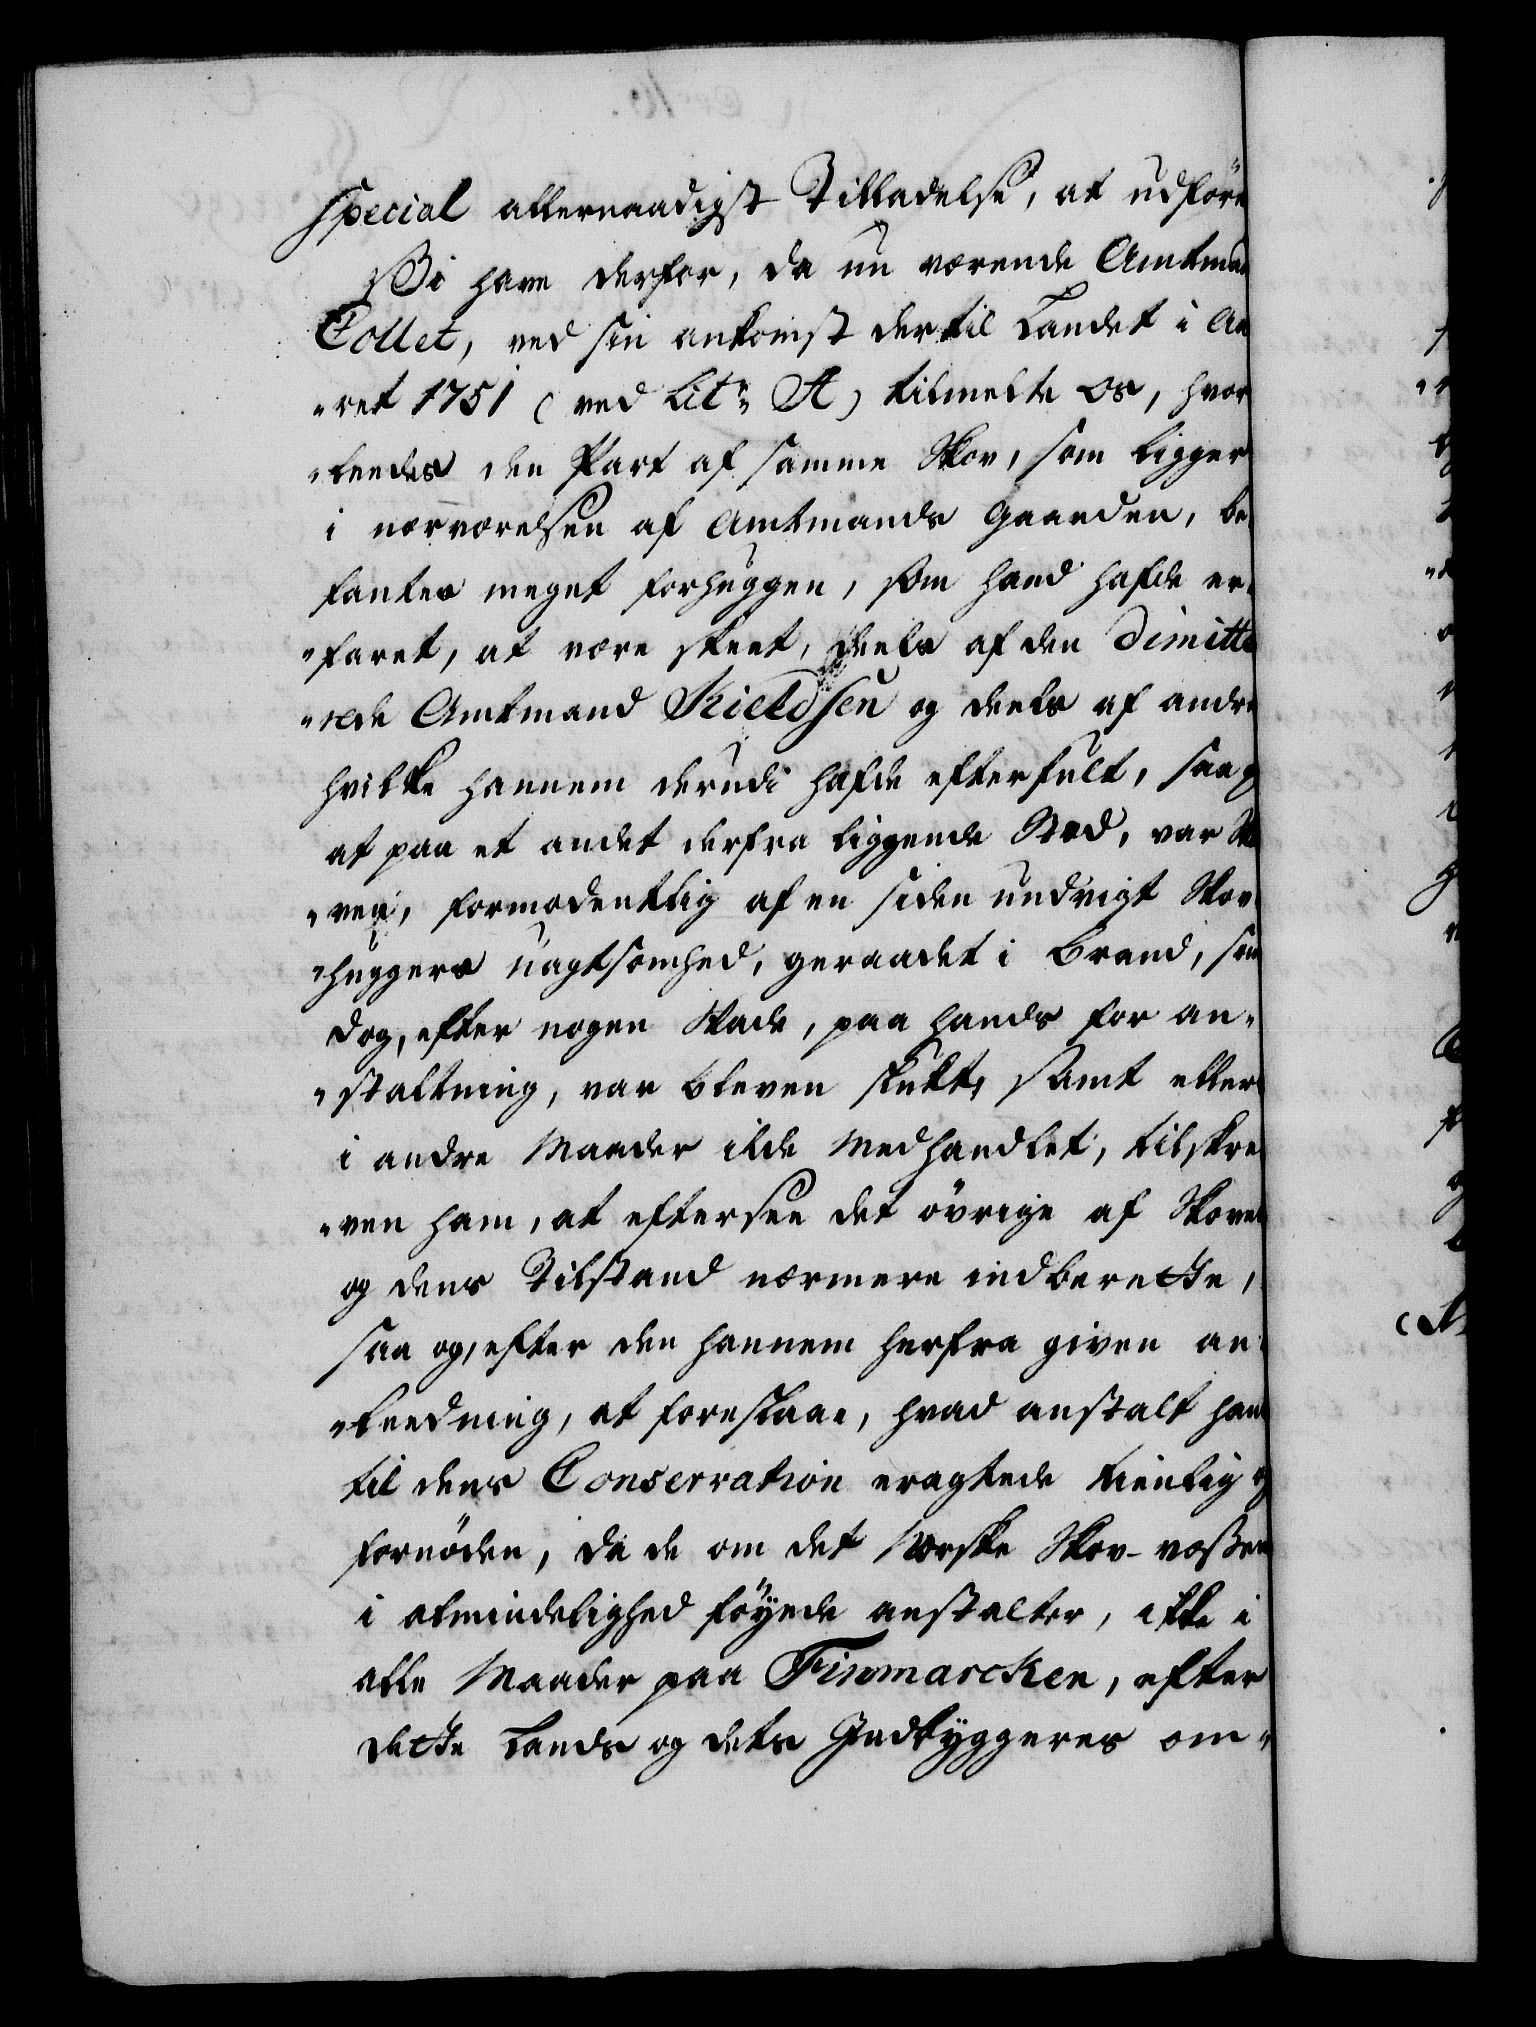 special allernaadigst Tilladelse, at udføre
Vi have derfor, da nu værende Amtmand
Collet, ved sin ankomst der til Landet i Aa
"ret 1751 (ved Lit: A) tilmelte os, hvor
"leedes den Part af samme Skov, som ligger
i nærværelsen af Amtmands Gaarden, be
fantes meget forhuggen, som hand hafde er
"faret, at være skeet, deels af den Dimitte
"rede Amtmand Kieldsen og deels af andre
hvilke hannem derudi hafde efterfult, saa og
at paa et andet derfra liggende Stæd, var Sko
"ven, formodentlig af en siden undvigt Skov
"huggers uagtsomhed, geraadet i Brand, som
dog, efter nogen Skade, paa hands for an"
"staltning, var bleven slukt, samt eller
i andre Maader ilde Medhandlet, tilskre
"ven ham, at eftersee det øvrige af Skoven
og dens Tilstand nærmere indberette,
saa og, efter den hannem herfra given an
"leedning, at foreslaae, hvad anstalt hand
til dens Conservation eragtede tienlig og
fornøden, da de om det Norske Skov-væsen
i almindelighed føyede anstalter, ikke i
alle Maader paa Finmarcken, efter
dette Lands og dets Indbyggeres om"